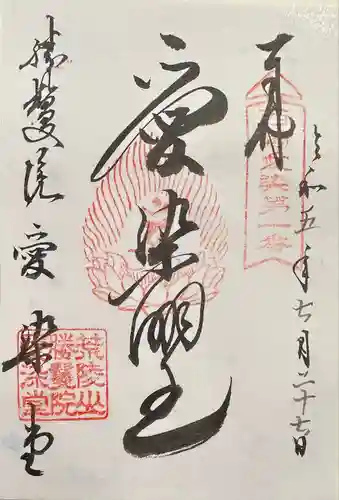 奉拝
令和五年七月二十七日
愛染明王
勝鬘院
愛染堂
荒陵山
勝鬘院
愛染堂